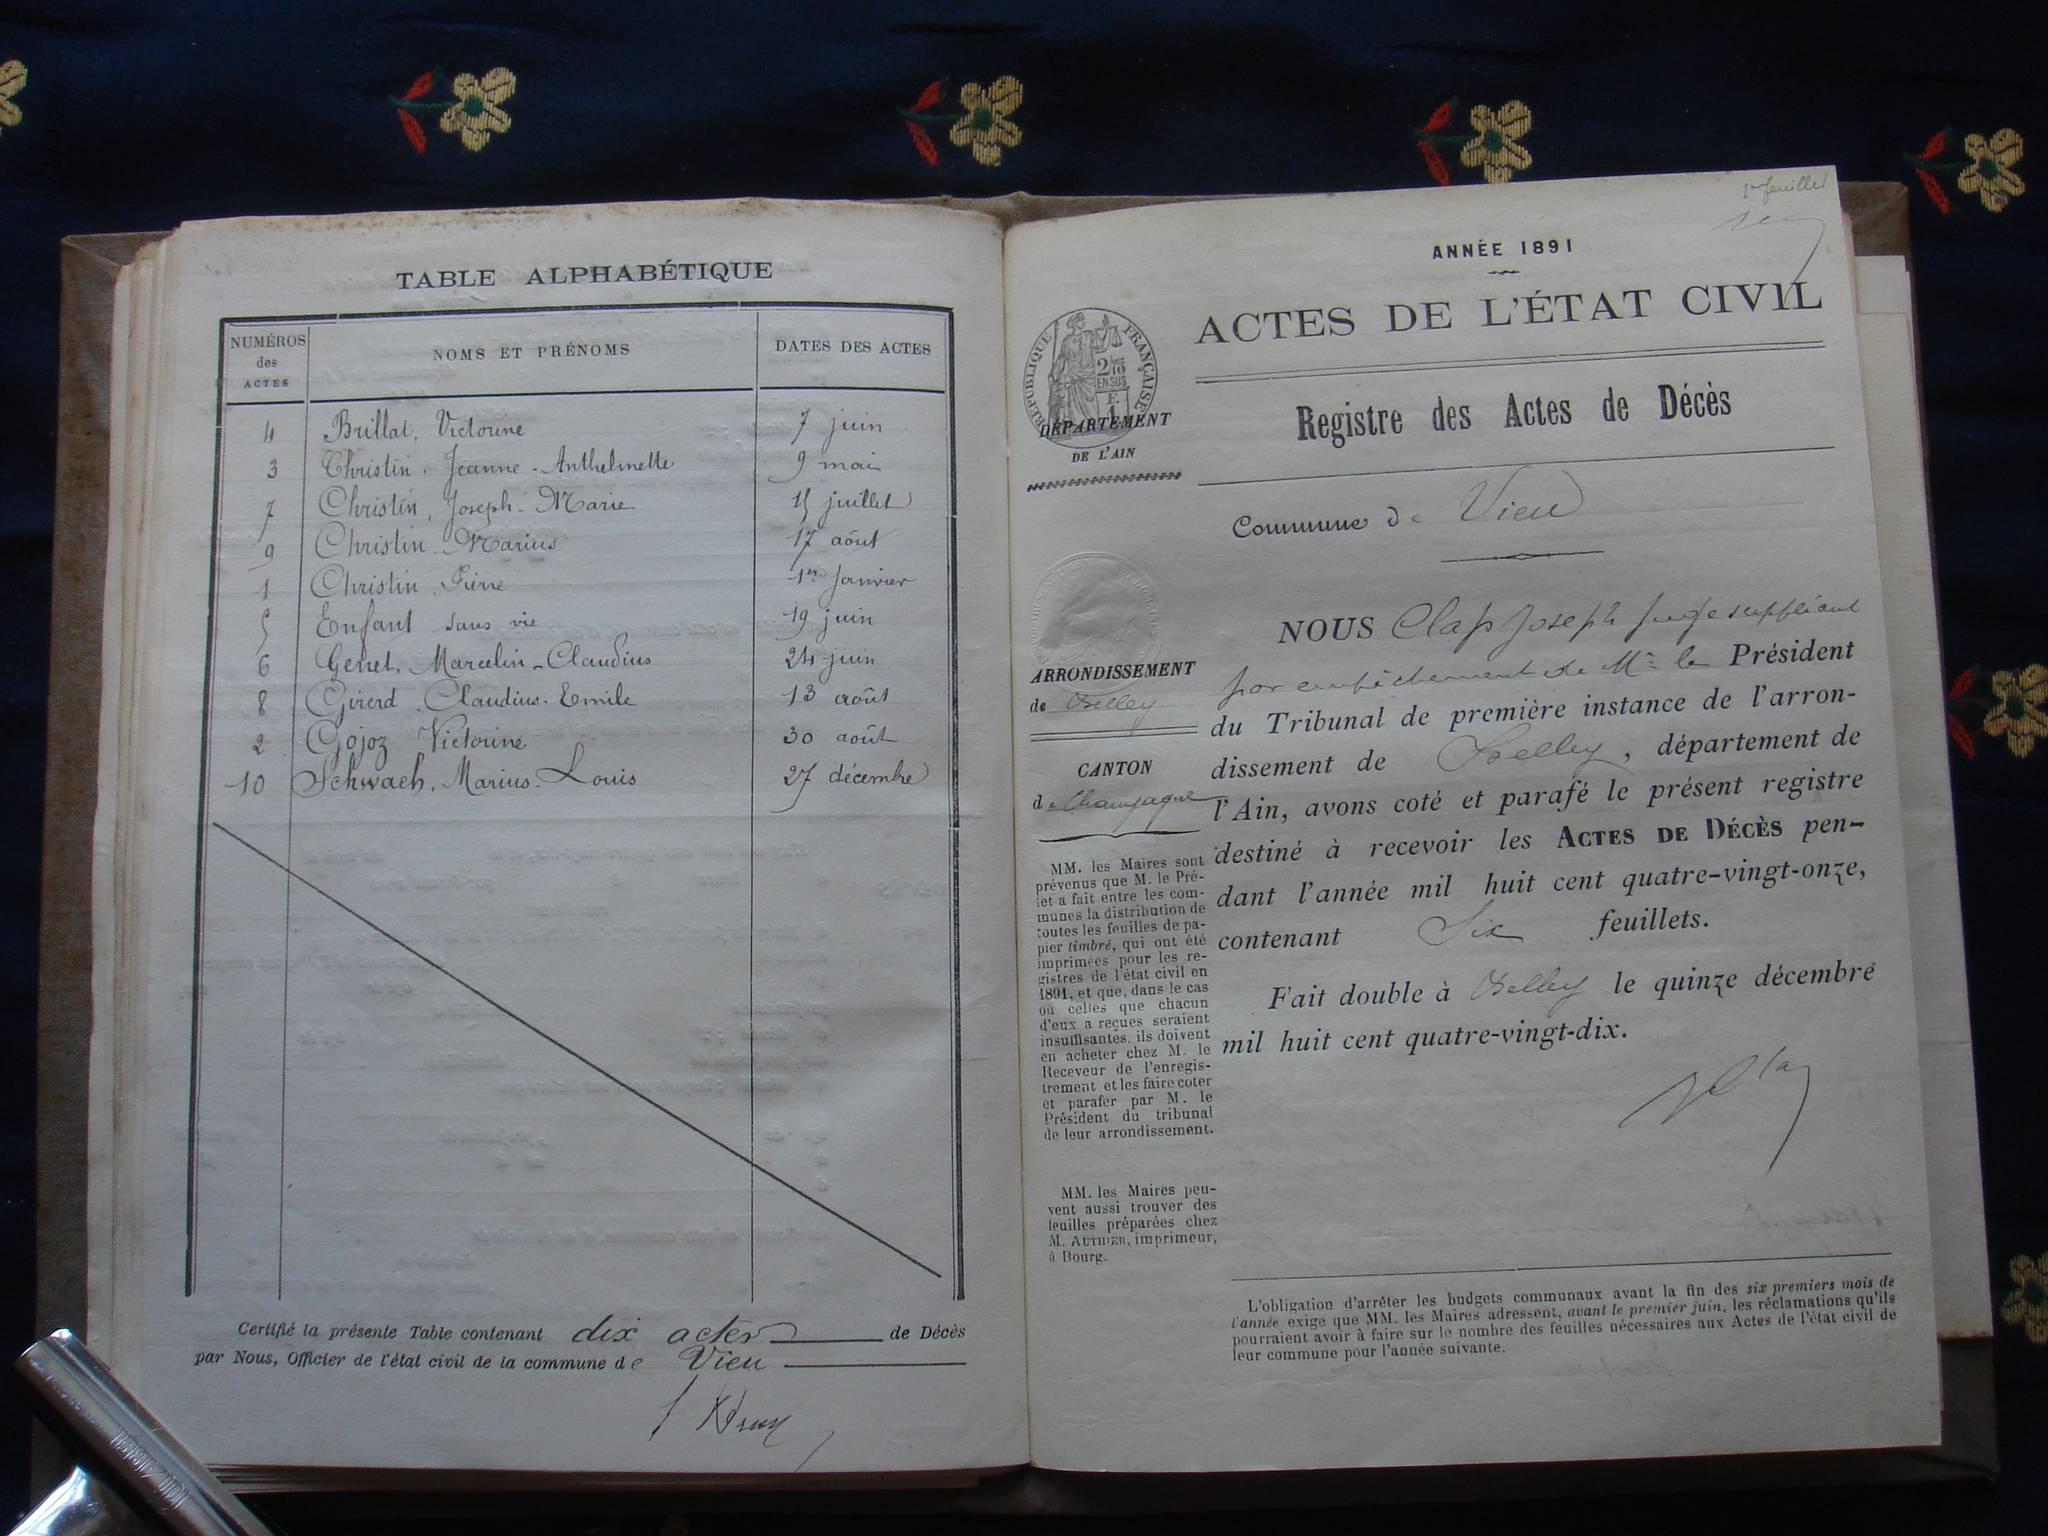 TABLE ALPHABÉTIQUE
NUMÉROS des ACTES
NOMS ET PRÉNOMS
DATES DES ACTES
4 Brillat, Victorine 7 juin
3 Christin, Jeanne-Anthelmette 9 mai
7 Christin, Joseph-Marie 15 juillet
9 Christin, Marius 17 août
1 Christin, Pierre 1er Janvier
5 Enfant sans vie 19 juin
6 Genet, Marcelin-Claudius 24 juin
8 Girerd, Claudius-Emile 13 août
2 Gojoz Victorine 30 août
10 Schwaeh, Marius-Louis 27 décembre
Certifié la présente Table contenant dix actes de Décès
par Nous, Officier de l'état civil de la commune de Vieu
1er feuillet
ANNÉE 1891
ACTES DE L'ÉTAT CIVIL
RÉPUBLIQUE FRANÇAISE
DÉPARTEMENT
DE L'AIN
Registre des Actes de Décès
Commune de Vieu
ARRONDISSEMENT
de Belley
CANTON
de Champagne
MM. les Maires sont
prévenus que M. le Pré-
fet a fait entre les com-
munes la distribution de
toutes les feuilles de pa-
pier timbré, qui ont été
imprimées pour les re-
gistres de l'état civil en
1891, et que, dans le cas
où celles que chacun
d'eux a reçues seraient
insuffisantes, ils doivent
en acheter chez M. le
Receveur de l'enregis-
trement et les faire coter
et parafer par M. le
Président du tribunal
de leur arrondissement.
MM. les Maires peu-
vent aussi trouver des
feuilles préparées chez
M. AUTHIER, imprimeur,
à Bourg.
NOUS Clap Joseph Juge suppléant
par empêchement de Mr le Président
du Tribunal de première instance de l'arron-
dissement de Belley, département de
l'Ain, avons coté et parafé le présent registre
destiné à recevoir les ACTES DE DÉCÈS pen-
dant l'année mil huit cent quatre-vingt-onze,
contenant Six feuillets.
Fait double à Belley le quinze décembre
mil huit cent quatre-vingt-dix.
L'obligation d'arrêter les budgets communaux avant la fin des six premiers mois de
l'année exige que MM. les Maires adressent, avant le premier juin, les réclamations qu'ils
pourraient avoir à faire sur le nombre des feuilles nécessaires aux Actes de l'état civil de
leur commune pour l'année suivante.